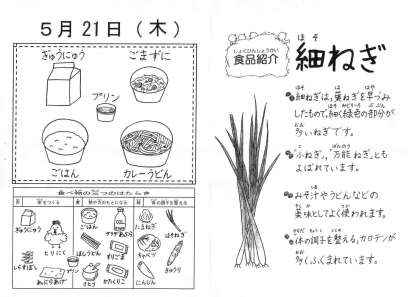 5月21日(木)
ぎゅうにゅう
ごまずに
プリン
ごはん
カレーうどん
食べ物の三つのはたらき
ぎゅうにゅう
とりにく
ごはん
サラダあぶら
ほしうどん
すりごま
カレールウ
かたくりこ
さとう
たまねぎ
ほそねぎ
キャベツ
きゅうり
にんじん
しょくひんしょうかい
食品紹介
ほそ
細ねぎ
細ねぎは、葉ねぎを早づみ
したもので、細く緑色の部分が
多いねぎです。
「小ねぎ」、「万能ねぎ」とも
よばれています。
みそ汁やうどんなどの
薬味としてよく使われます。
体の調子を整える、カロテンが
多くふくまれています。